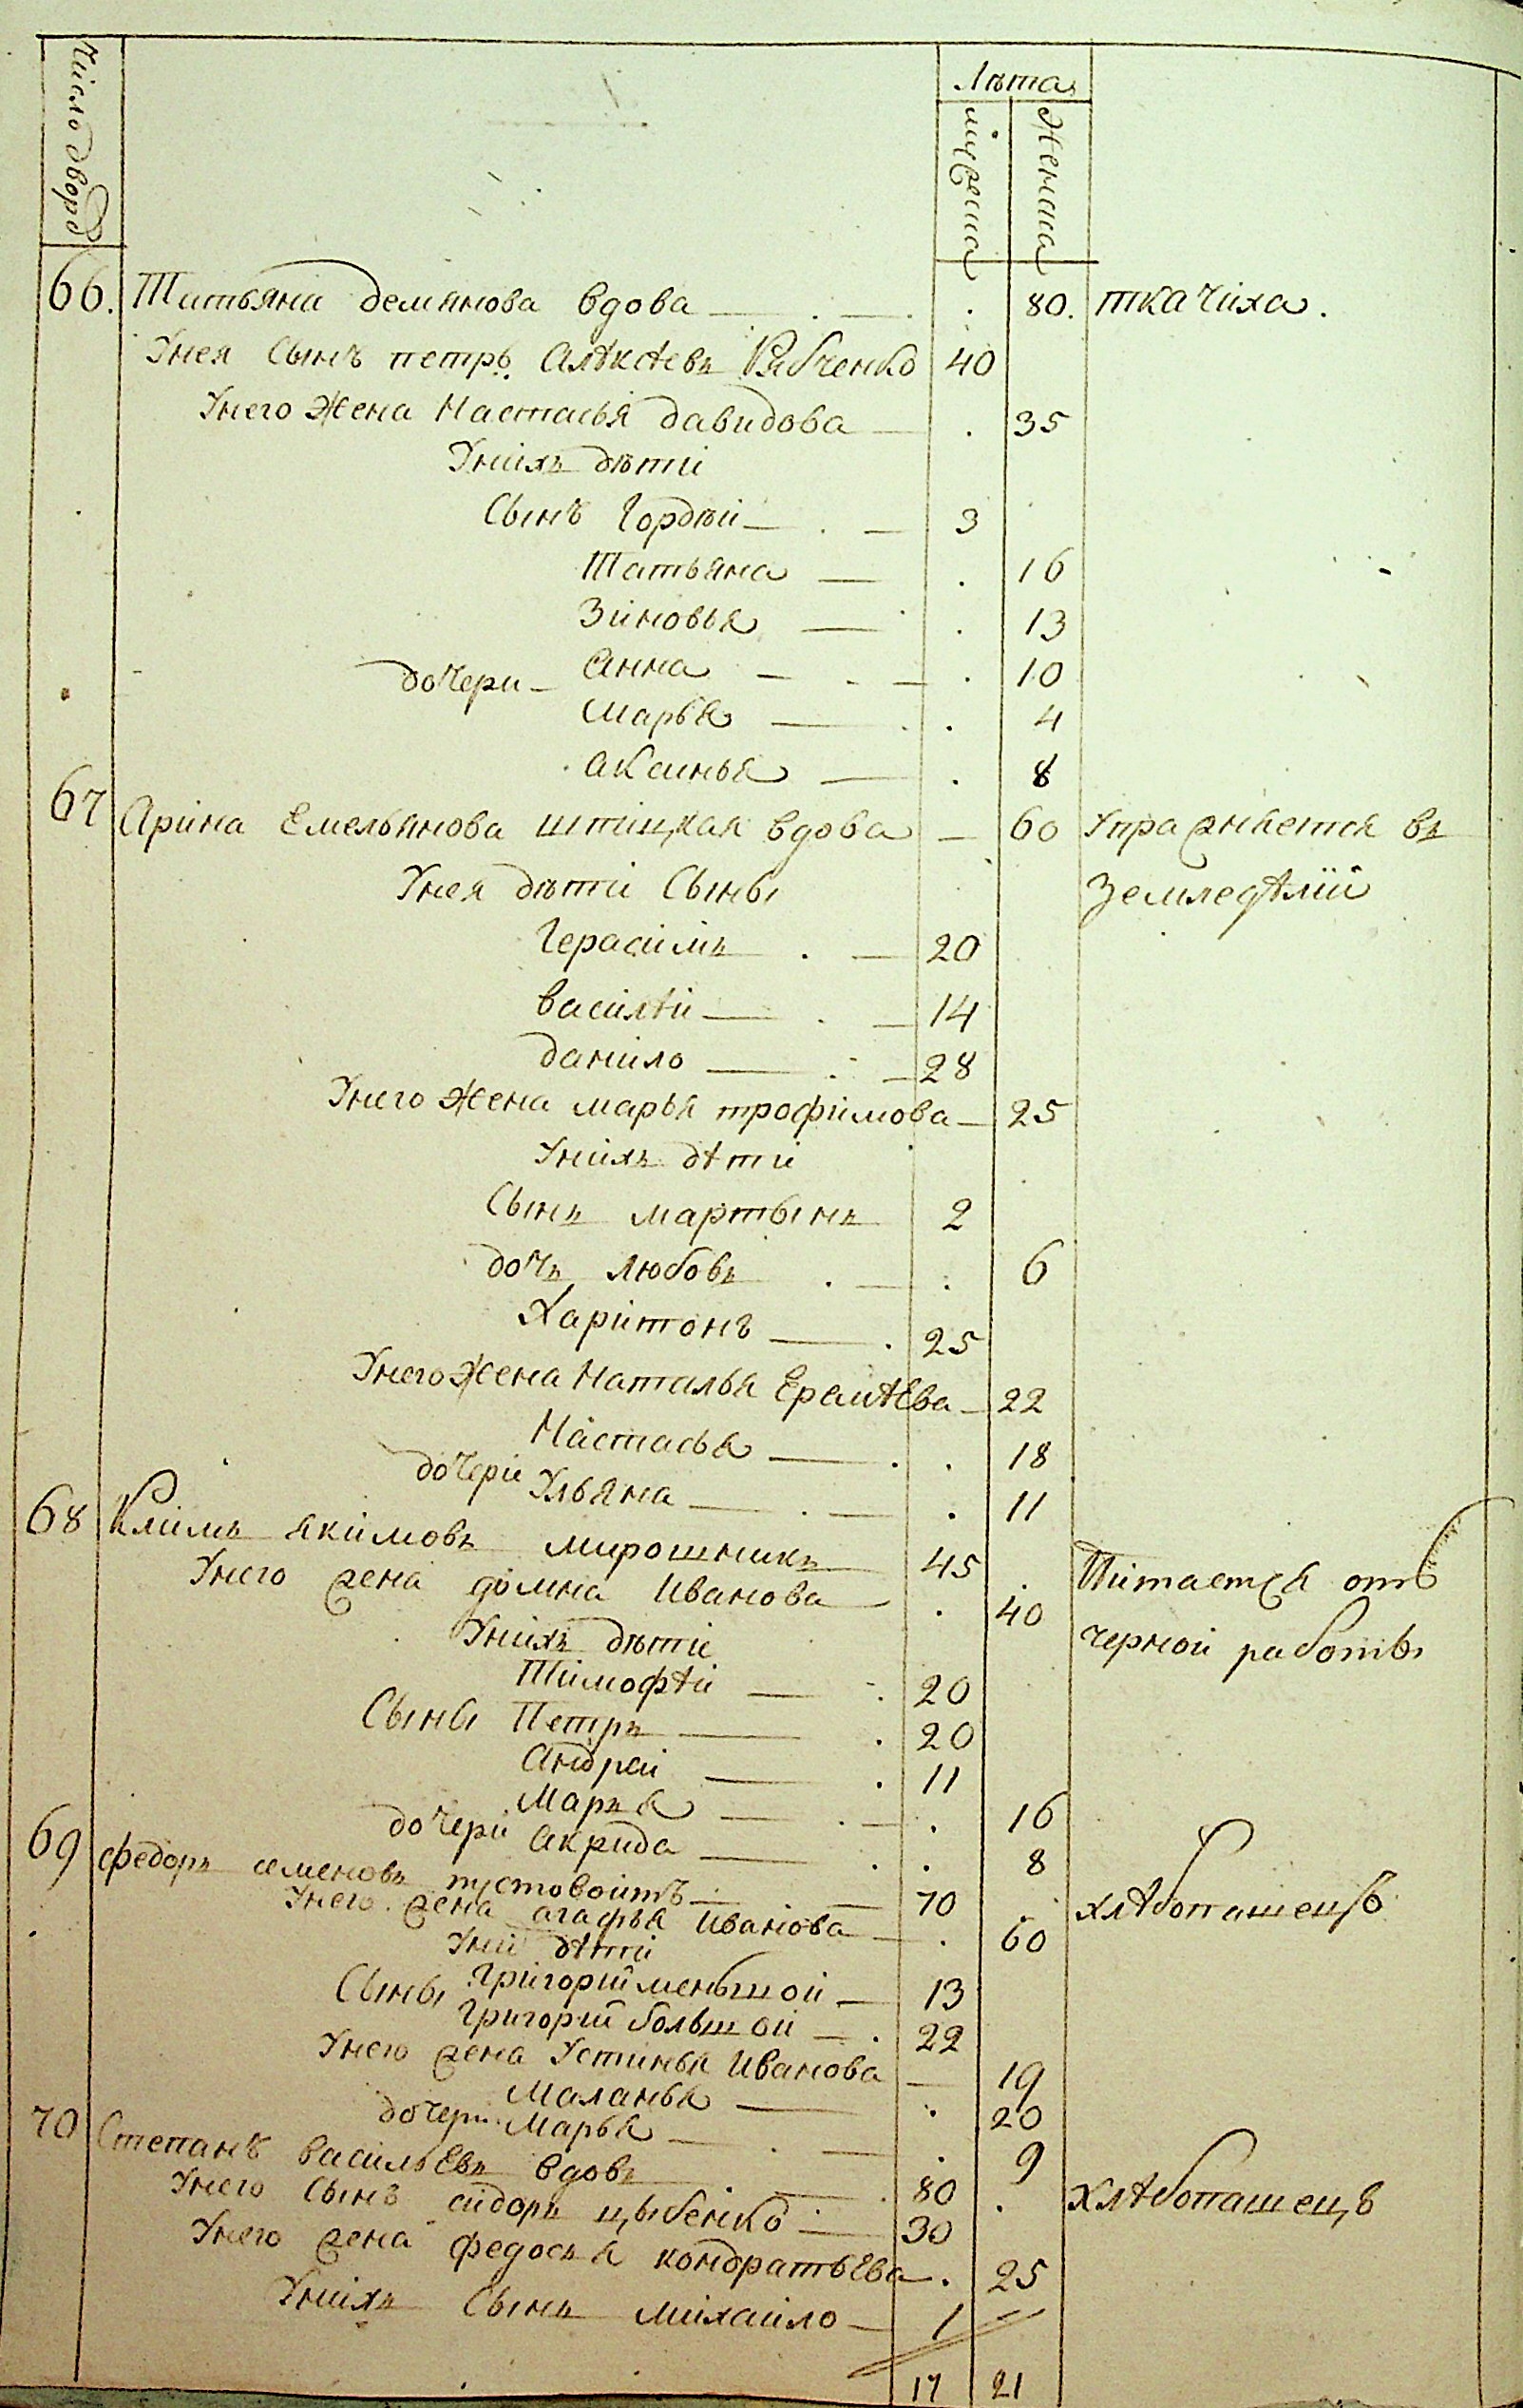 Число дворо
Лѣта
мужеска
женска
66. Татьяна демянова вдова . 80. ткачиха.
Унея Сынъ петръ Алѣксѣевъ Рябченко 40
Унего жена Настасья давидова . 35
Унихъ дѣти
Сынъ Гордѣи 3
Татьяна . 16
Зиновья . 13
дочери Анна . 10
Марья . 4
Аксинья . 8
67 Арина Емельянова штицкая вдова 60 Упражняется въ
Унея дѣти Сыны Земледѣлїй
Герасимъ 20
василѣй 14
данило 28
Унего жена марья трофимова 25
Унихъ дѣти
Сынъ мартынъ 2
дочъ любовъ . 6
Харитонъ 25
Унего жена Наталья ЕремѣЕва 22
Настасья . 18
дочери Ульяна . 11
68 Климъ якимовъ мирошникъ 45 . Питается отъ
Унего жена домна Иванова . 40 черной работы
Унихъ дѣти
Тимофѣй 20
Сыны Петръ 20
Андрей 11
Маръя . 16
дочери Акрида . 8
69 федоръ семеновъ пустовоитъ 70 . хлѣбопашецъ
Унего жена агафья Иванова . 60
Уни дѣти
Сыны Григорїй меньшой 13
Григорїй большой 22
Унего жена Устинья Иванова 19
Маланья . 20
дочери Марья . 9
70 Степанъ васильЕвъ вдовъ 80 . Хлѣбопашецъ
Унего Сынъ сидоръ цыбенко 30
Унего жена федосъя кондратьЕва . 25
Унихъ Сынъ михаило 1
17 21